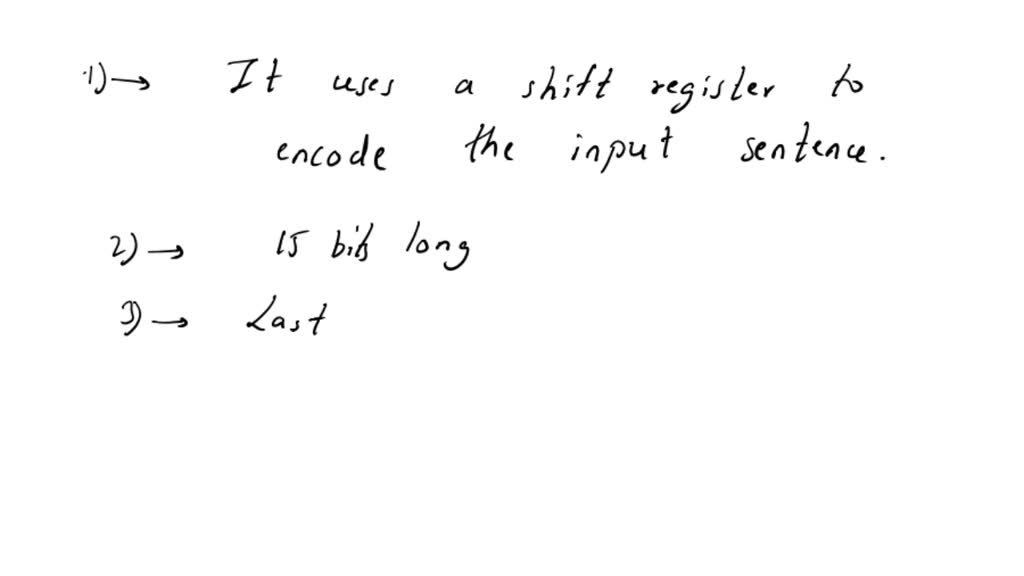 1) → It uses a shift register to
encode the input sentence.
2) → 15 bits long
3) → Last